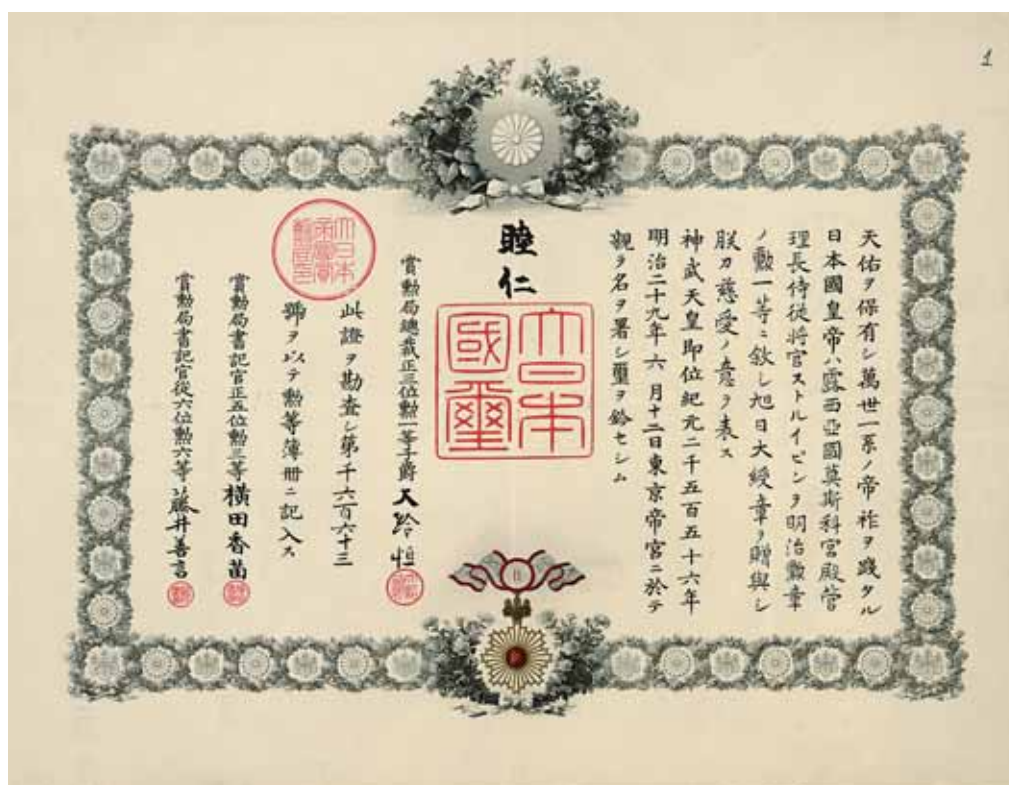 天佑ヲ保有シ萬世一系ノ帝祚ヲ踐タル
日本國皇帝ハ露西亞國莫斯科宮殿管
理長侍從將官ストルイピンヲ明治勲章
ノ勲一等ニ敘シ旭日大綬章ヲ贈與シ
朕カ慈愛ノ意ヲ表ス
神武天皇即位紀元二千五百五十六年
明治二十九年六月十二日東京帝宮ニ於テ
親ラ名ヲ署シ璽ヲ鈐セシム
睦仁
大日本
國璽
賞勲局總裁正三位勲一等子爵大給恒
此證ヲ勘査シ第千六百六十三
號ヲ以テ勲等簿冊ニ記入ス
賞勲局書記官正五位勲三等横田香苗
賞勲局書記官從六位勲六等藤井善言
1